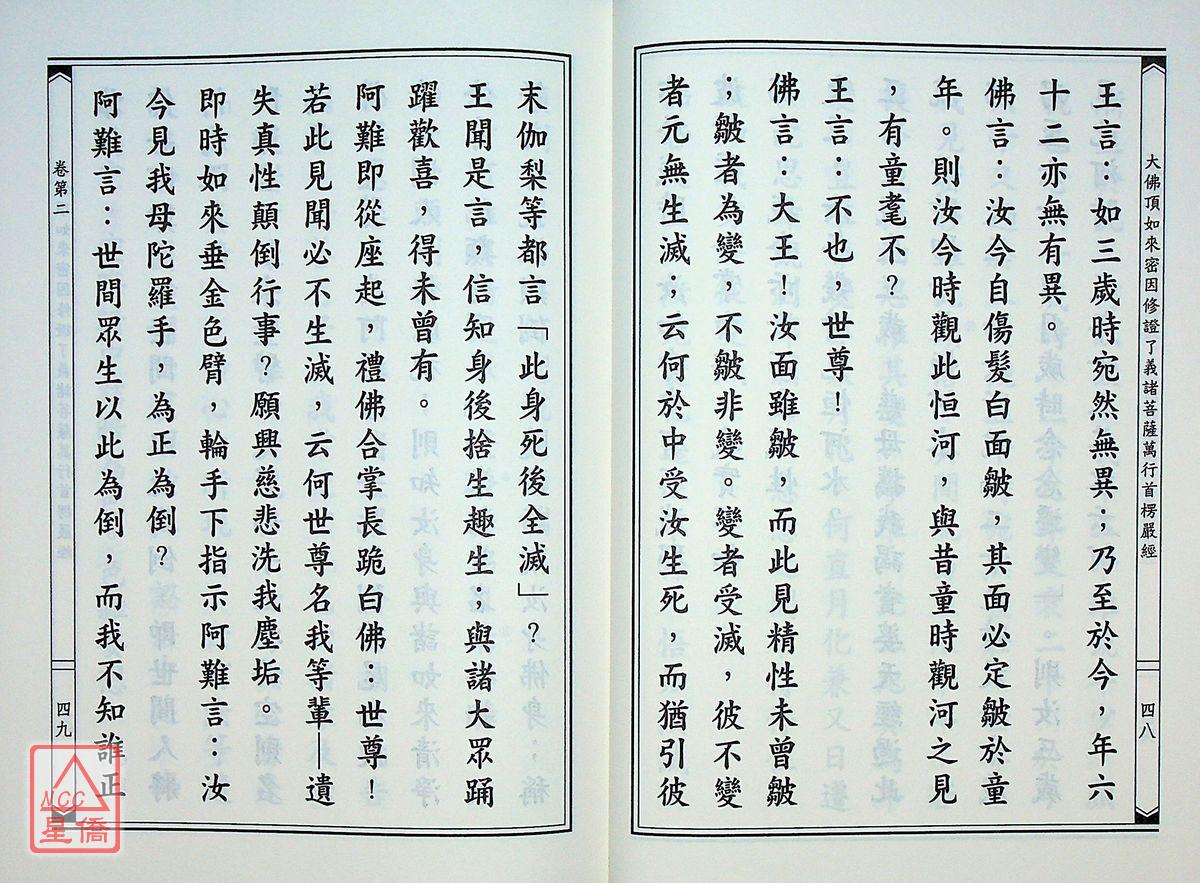 大佛頂如來密因修證了義諸菩薩萬行首楞嚴經
四八
王言：如三歲時宛然無異；乃至於今，年六
十二亦無有異。
佛言：汝今自傷髮白面皺，其面必定皺於童
年。則汝今時觀此恒河，與昔童時觀河之見
，有童耄不？
王言：不也，世尊！
佛言：大王！汝面雖皺，而此見精性未曾皺
；皺者為變，不皺非變。變者受滅，彼不變
者元無生滅；云何於中受汝生死，而猶引彼
末伽梨等都言「此身死後全滅」？
王聞是言，信知身後捨生趣生；與諸大眾踊
躍歡喜，得未曾有。
阿難即從座起，禮佛合掌長跪白佛：世尊！
若此見聞必不生滅，云何世尊名我等輩—遺
失真性顛倒行事？願興慈悲洗我塵垢。
即時如來垂金色臂，輪手下指示阿難言：汝
今見我母陀羅手，為正為倒？
阿難言：世間眾生以此為倒，而我不知誰正
卷第二
四九
NCC
星僑